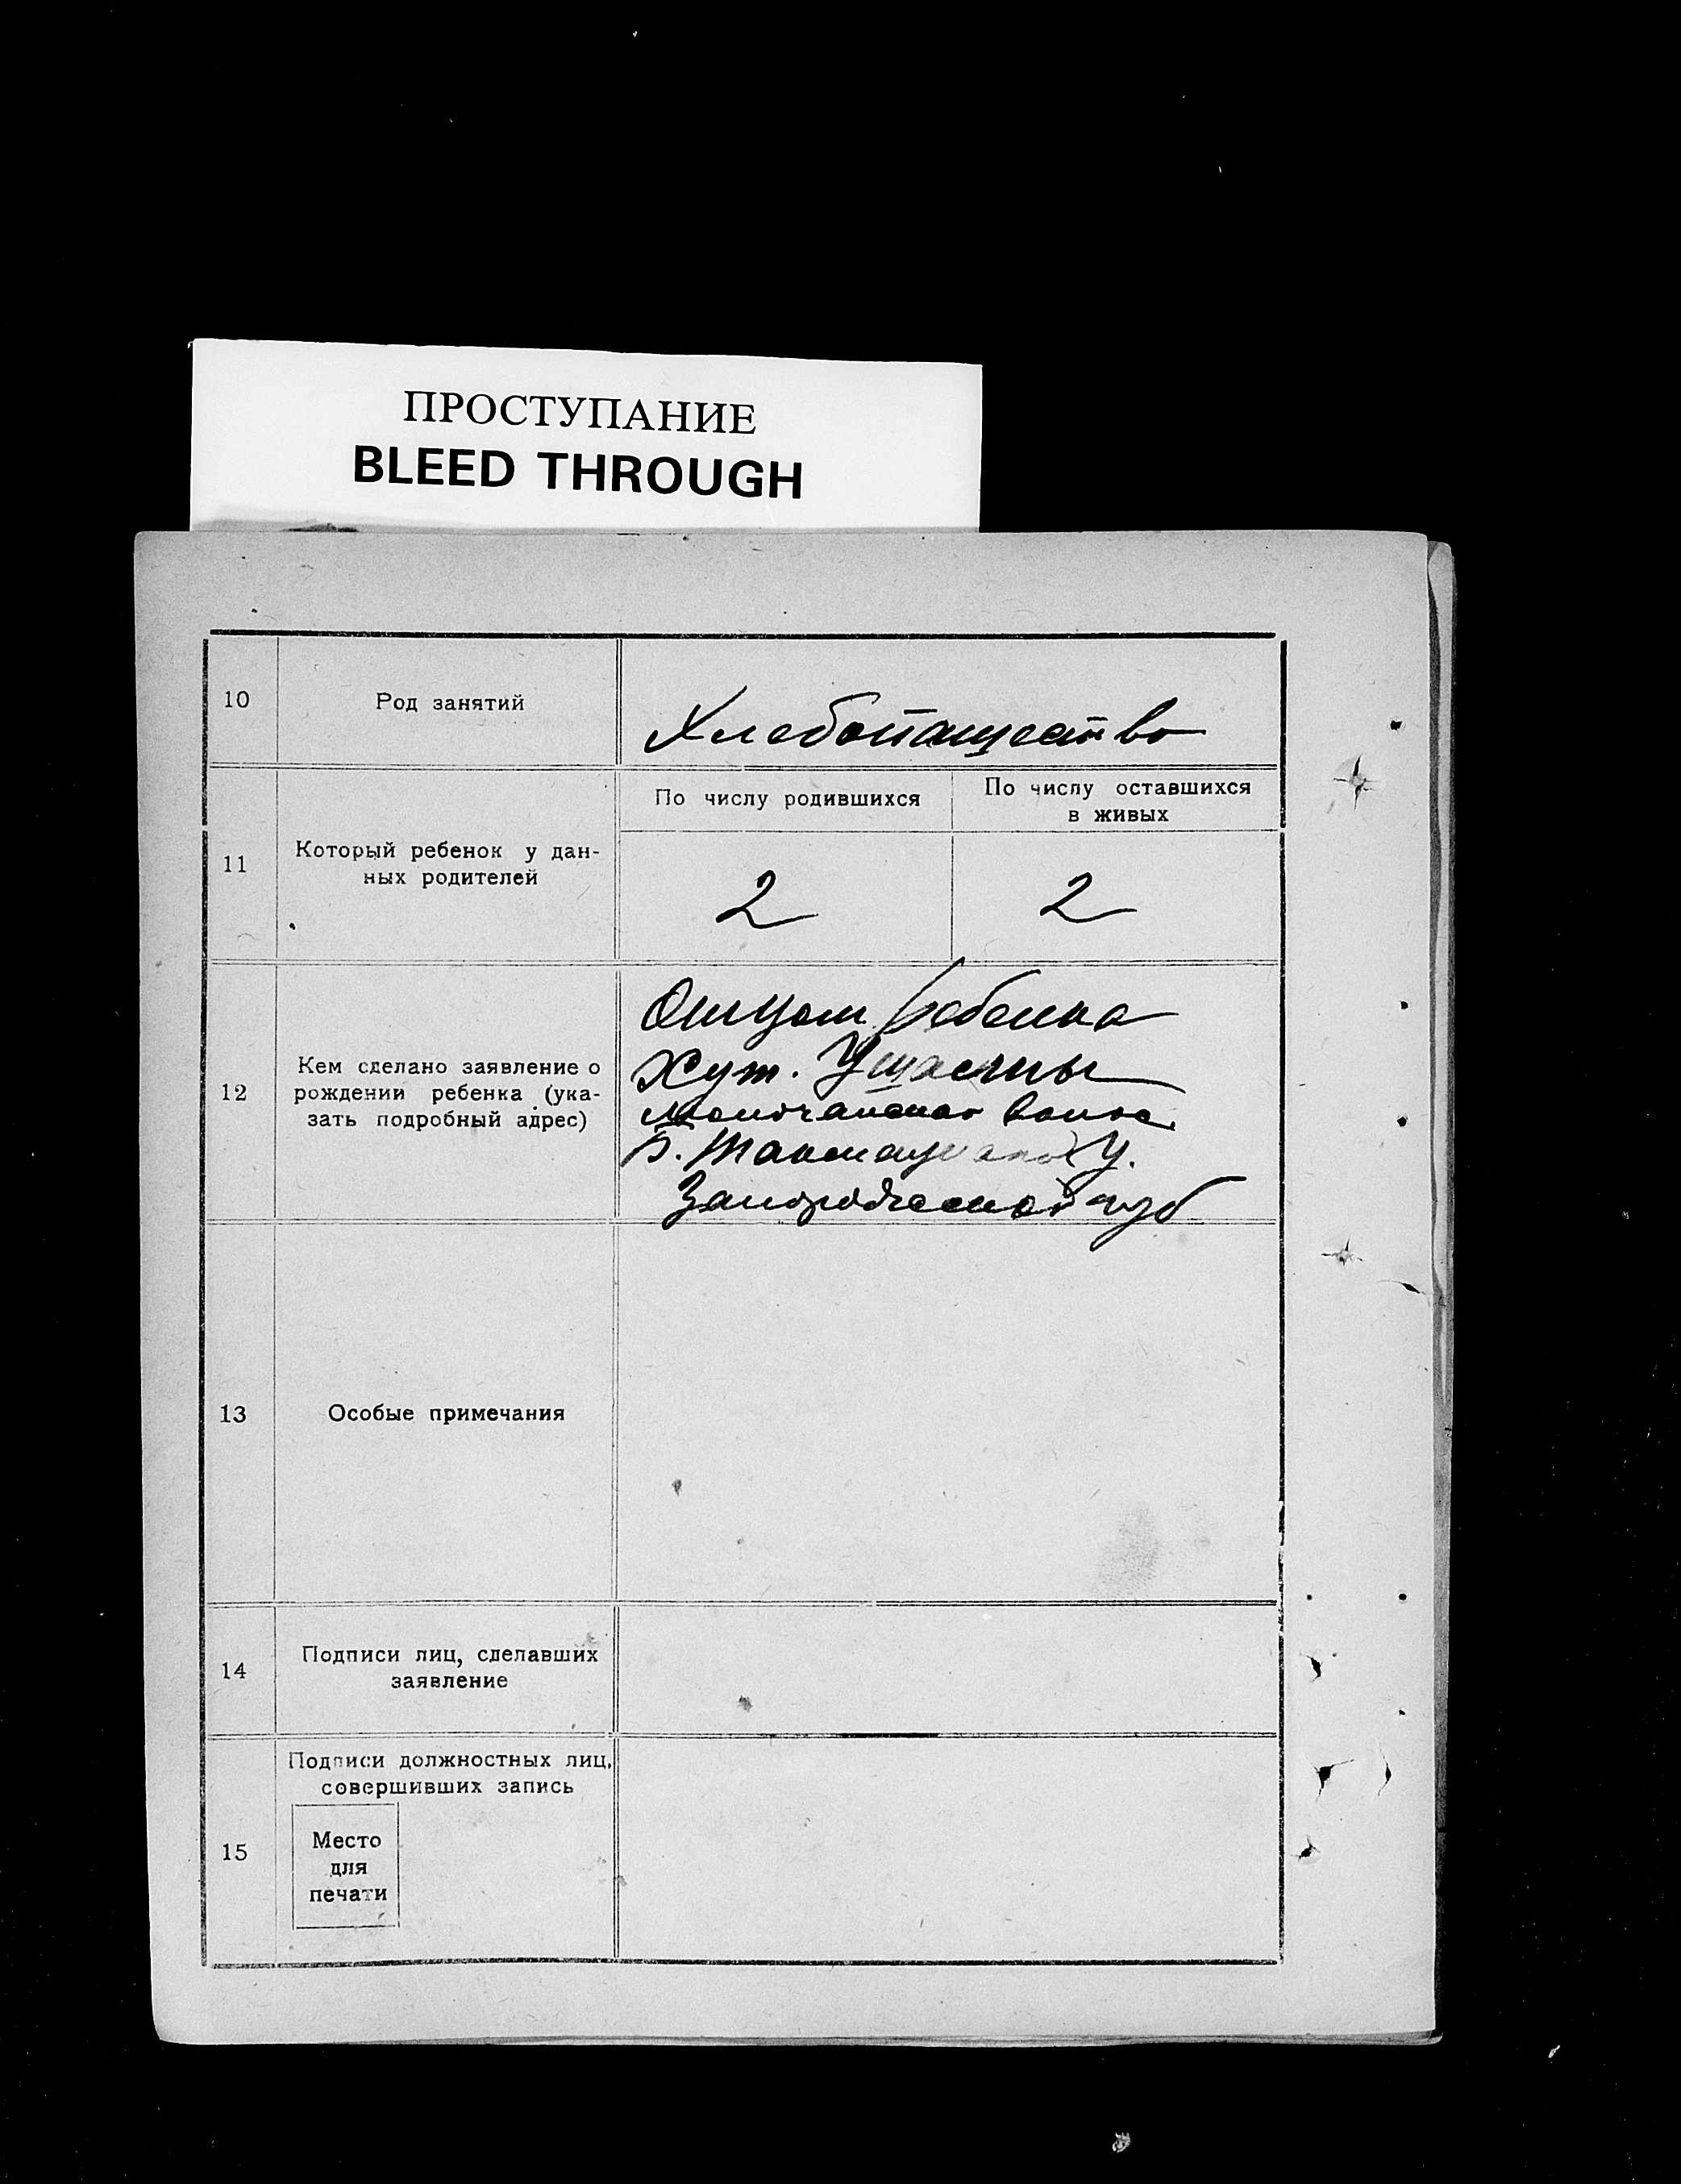 ПРОСТУПАНИЕ
BLEED THROUGH
10
Род занятий
Хлебопашество
11
Который ребенок у дан-
ных родителей
По числу родившихся
По числу оставшихся
в живых
2
2
12
Кем сделано заявление о
рождении ребенка (ука-
зать подробный адрес)
Отцом ребенка
Хут.
Молочанской волос.
Б. Токмацкого У.
Запорожской губ
13
Особые примечания
14
Подписи лиц, сделавших
заявление
15
Подписи должностных лиц,
совершивших запись
Место
для
печати